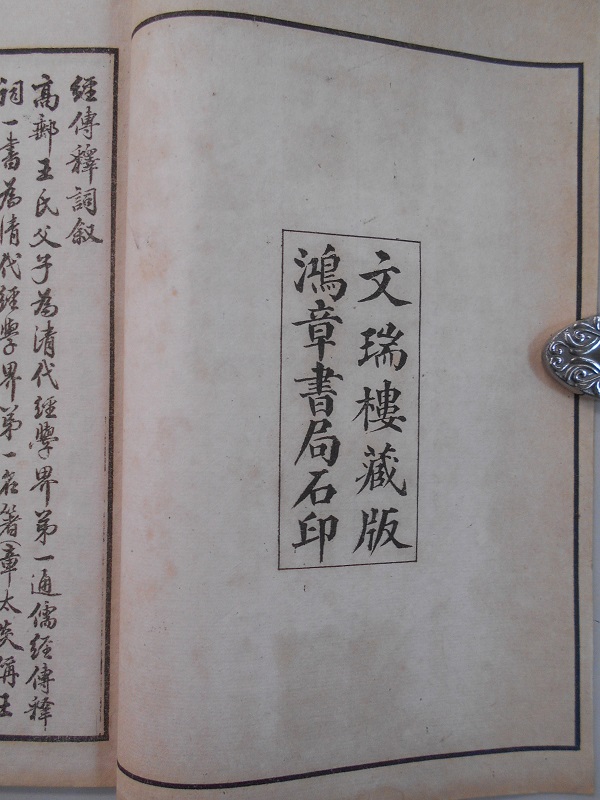 文瑞樓藏版
鴻章書局石印
經傳釋詞叙
高郵王氏父子為清代經學界第一通儒經傳釋
詞一書為清代經學界第一名著(章太炎稱王